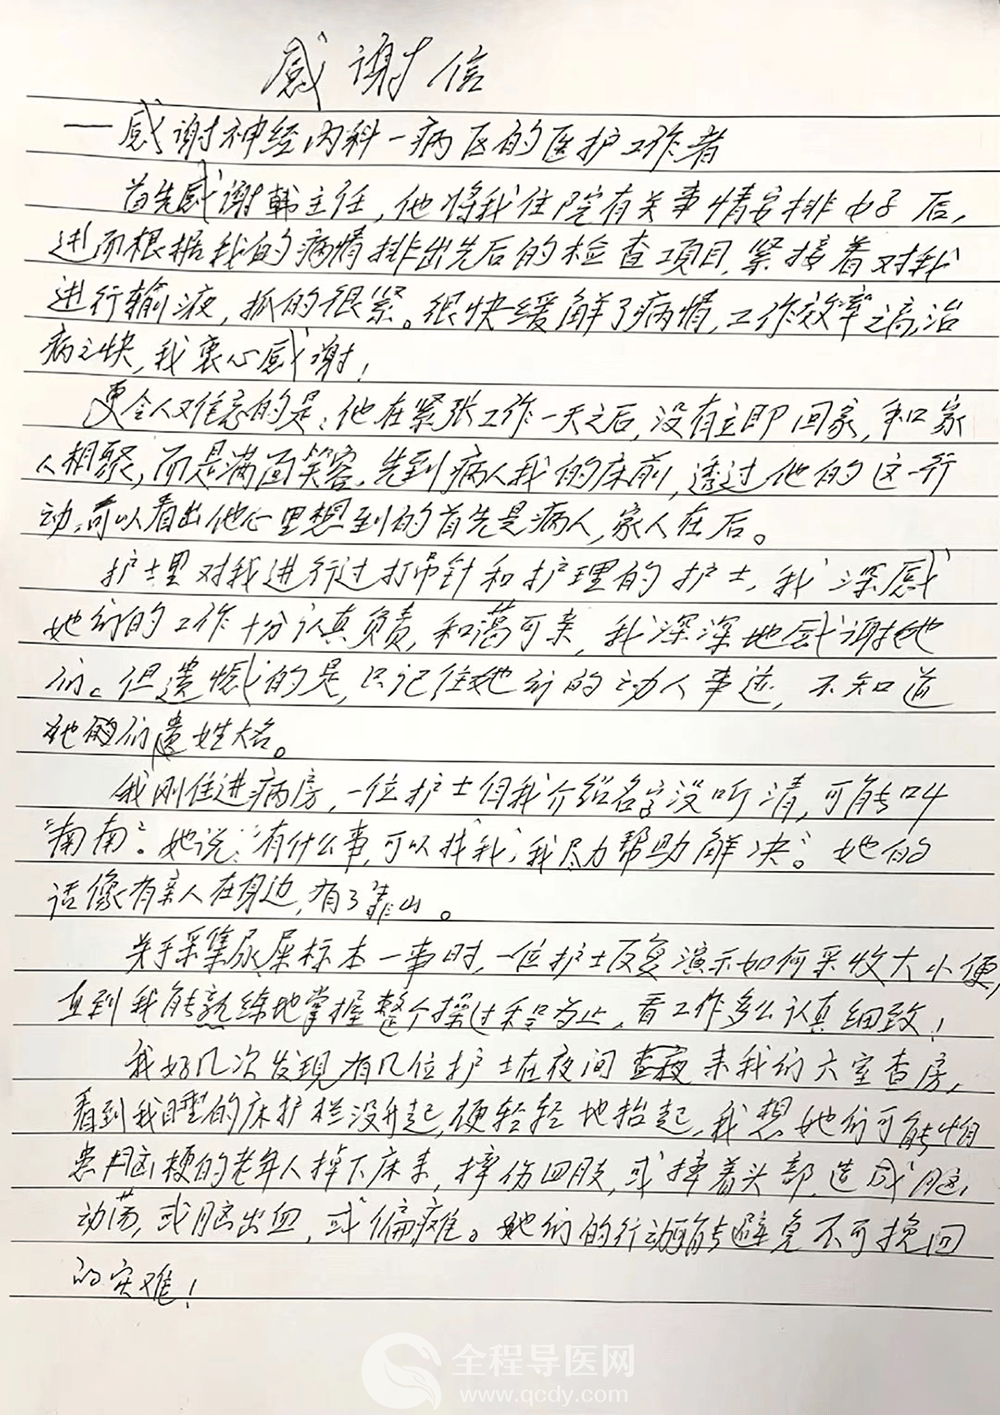 感谢信
—感谢神经内科一病区的医护工作者
首先感谢韩主任，他将我住院有关事情安排好后，
进而根据我的病情排出先后的检查项目，紧接着对我
进行输液，抓的很紧。很快缓解了病情，工作效率之高，治
病之快，我衷心感谢！
更令人难忘的是：他在紧张工作一天之后，没有立即回家，和家
人相聚，而是满面笑容，先到病人我的床前，透过他的这一行
动，可以看出他心里想到的首先是病人，家人在后。
护士里对我进行过打吊针和护理的护士，我深感
她们的工作十分认真负责，和蔼可亲，我深深地感谢她
们。但遗憾的是，只记住她们的动人事迹，不知道
她们姓名。
我刚住进病房，一位护士自我介绍名字没听清，可能叫
“南南”。她说：“有什么事，可以找我，我尽力帮助解决”。她的
话像有亲人在身边，有了靠山。
关于采集尿屎标本一事时，一位护士反复演示如何采收大小便，
直到我能熟练地掌握整个操过程为止，看工作多么认真细致！
我好几次发现有几位护士在夜间来我们六室查房，
看到我睡的床护栏没升起，便轻轻地抬起，我想她们可能怕
患脑梗的老年人掉下床来，摔伤四肢，或摔着头部，造成脑
动荡，或脑出血，或偏瘫。她们的行动能避免不可挽回
的灾难！
全程导医网
www.qcdy.com